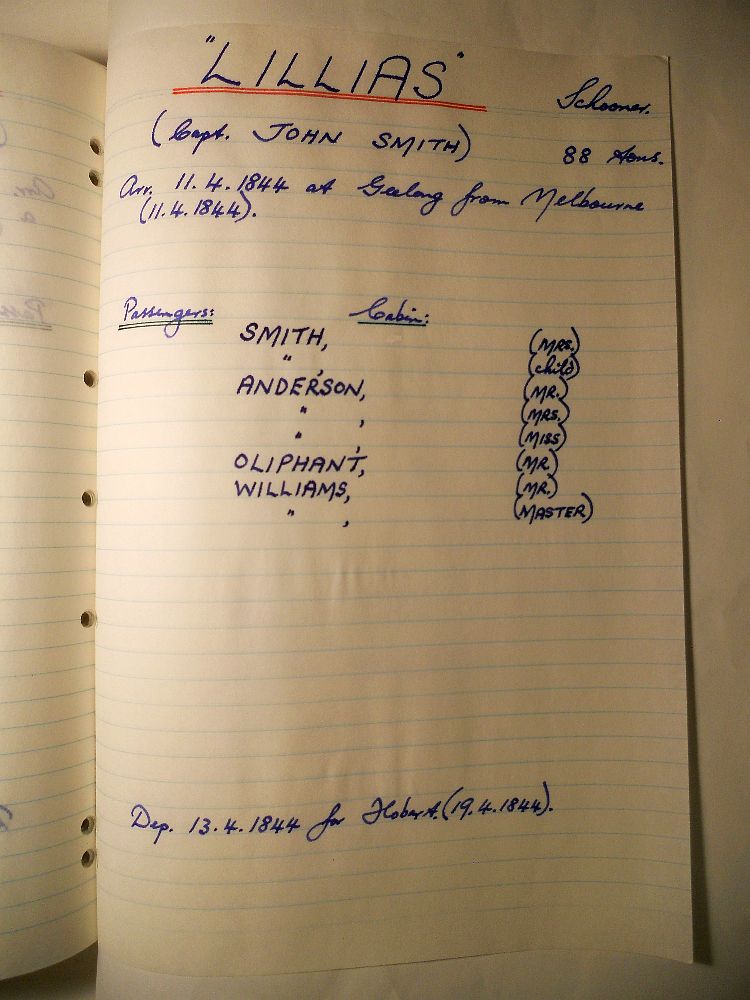 "LILLIAS"
Schooner.
(Capt. JOHN SMITH)
88 tons.
Arr. 11.4.1844 at Geelong from Melbourne
(11.4.1844).
Passengers: Cabin:
SMITH, (MRS.)
" , (child)
ANDERSON, (MR.)
" , (MRS.)
" , (MISS)
OLIPHANT, (MR)
WILLIAMS, (MR.)
" , (MASTER)
Dep. 13.4.1844 for Hobart. (19.4.1844).